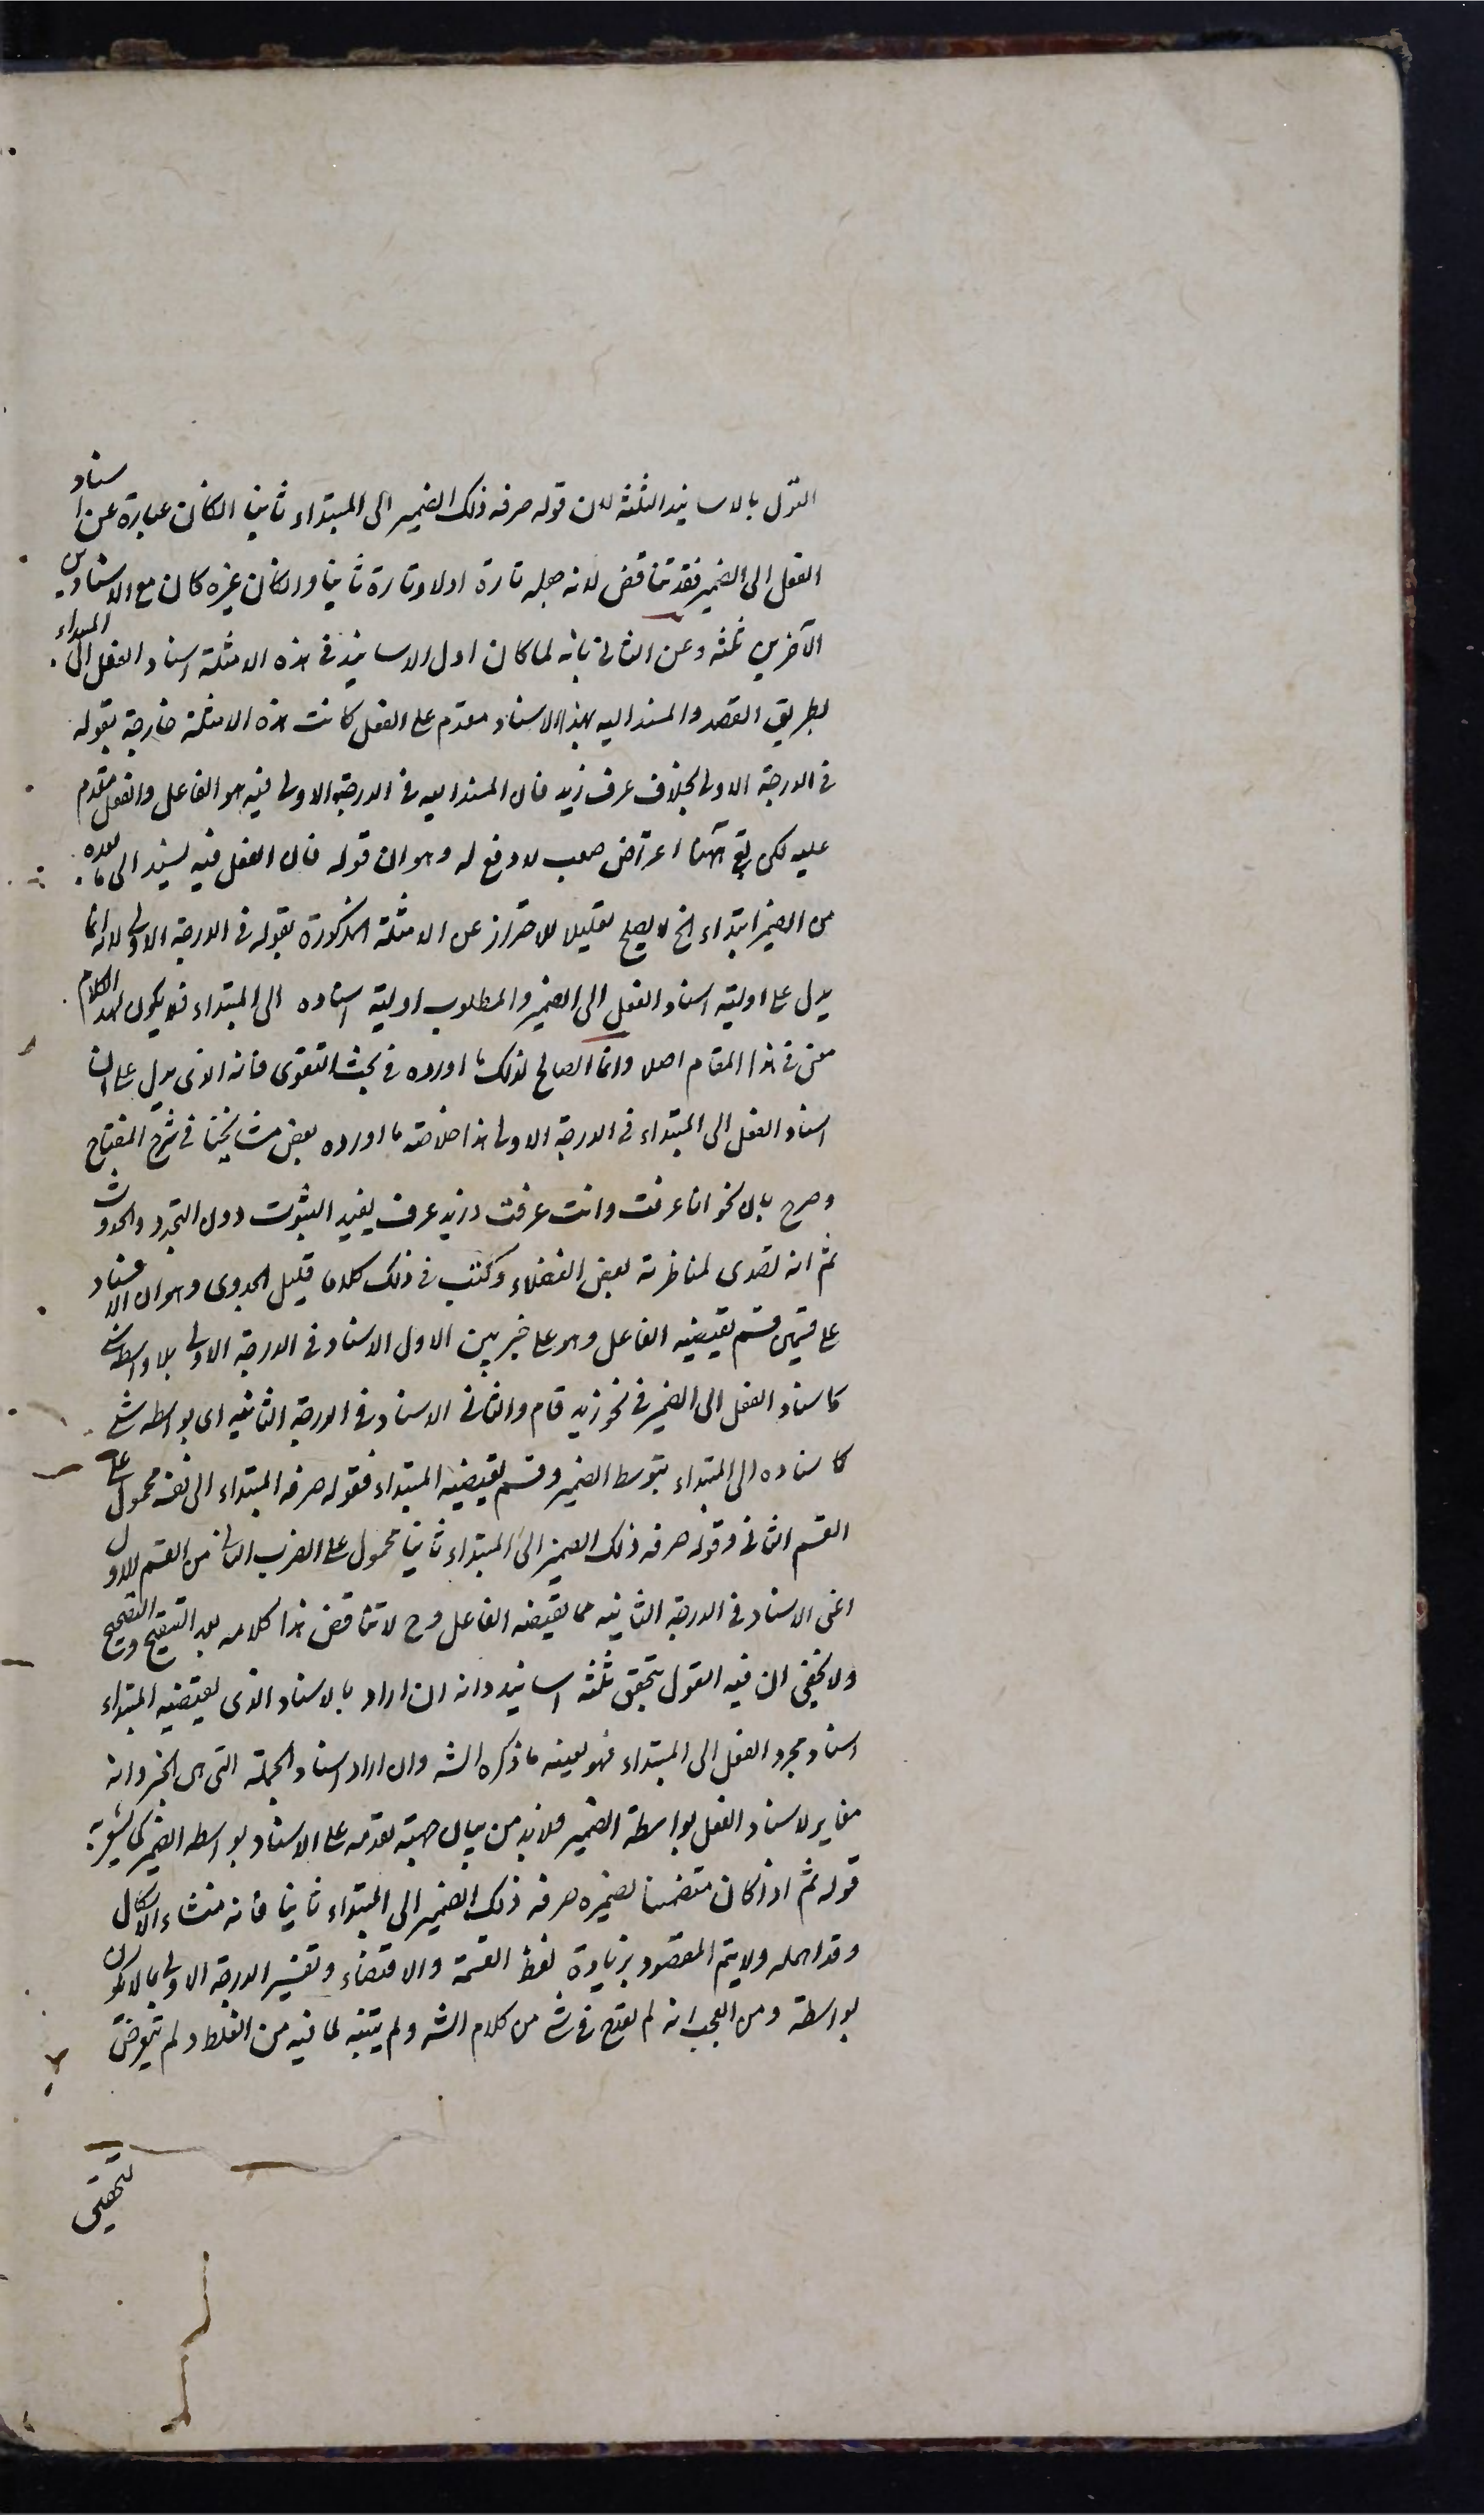 القول بالاسانيد الثلثة لان قوله صرفه ذلك الضمير الى المبتداء ثانيا ان كان عبارة عن اسناد
الفعل الى الضمير فقد تناقض لانه جعله تارة اولا وتارة ثانيا وان كان غيره كان مع الاسنادين
الآخرين ثلثة وعن الثانى بانه لما كان اول الاسانيد فى هذه الامثلة اسناد الفعل الى المبتداء
بطريق القصد والمسند اليه بهذا الاسناد مقدم على الفعل كانت هذه الامثلة خارجة بقوله
فى الدرجة الاولى بخلاف عرف زيد فان المسند اليه فى الدرجة الاولى فيه هو الفاعل والفعل مقدم
عليه لكن بقى ههنا اعتراض صعب لا دفع له وهو ان قوله فان الفعل فيه يسند الى ما بعده
من الضمير ابتداء الخ لا يصلح تعليلا للاحتراز عن الامثلة المذكورة بقوله فى الدرجة الاولى لانه انما
يدل على اولية اسناد الفعل الى الضمير والمطلوب اولية اسناده الى المبتداء فلا يكون لهذا الكلام
معنى فى هذا المقام اصلا وانما الصالح لذلك ما اورده فى بحث التقوى فانه الذى يدل على ان
اسناد الفعل الى المبتداء فى الدرجة الاولى هذا خلاصة ما اورده بعض مشايخنا فى شرح المفتاح
وصرح بان نحو انا عرفت وانت عرفت وزيد عرف يفيد الثبوت دون التجدد والحدوث
ثم انه تصدى لمناظرته بعض الفضلاء وكتب فى ذلك كلاما قليل الجدوى وهو ان الاسناد
على قسمين قسم يقتضيه الفاعل وهو على ضربين الاول الاسناد فى الدرجة الاولى بلا واسطة شئ
كاسناد الفعل الى الضمير فى نحو زيد قام والثانى الاسناد فى الدرجة الثانية اى بواسطة شئ
كاسناده الى المبتداء بتوسط الضمير وقسم يقتضيه المبتداء فقوله صرفه المبتداء الى نفسه محمول على
القسم الثانى وقوله صرفه ذلك الضمير الى المبتداء ثانيا محمول على الضرب الثانى من القسم الاول
اعنى الاسناد فى الدرجة الثانية مما يقتضيه الفاعل وح لا تناقض هذا كلامه بعد التنقيح والتصحيح
ولا يخفى ان فيه القول بتحقق ثلثة اسانيد وانه ان اراد بالاسناد الذى يقتضيه المبتداء
اسناد مجرد الفعل الى المبتداء فهو بعينه ما ذكره الشه وان اراد اسناد الجملة التى هى الخبر وانه
مغاير لاسناد الفعل بواسطة الضمير فلا بد من بيان جهة تقدمه على الاسناد بواسطة الضمير كما يشعر به
قوله ثم اذا كان متضمنا لضميره صرفه ذلك الضمير الى المبتداء ثانيا فانه منشاء الاشكال
وقد اهمله ولا يتم المقصود بزيادة لفظ القسمة والاقتضاء وتفسير الدرجة الاولى بما لا يكون
بواسطة ومن العجب انه لم يقدح فى شئ من كلام الشه ولم يتنبه لما فيه من الغلط ولم يتعرض
لتحقيق